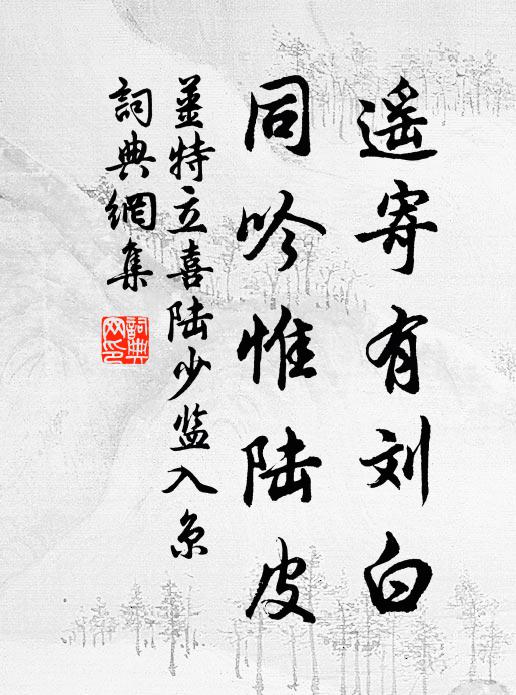 遥寄有刘白
同吟惟陆皮
姜特立喜陆少监入京
詞典網集
詞典网印